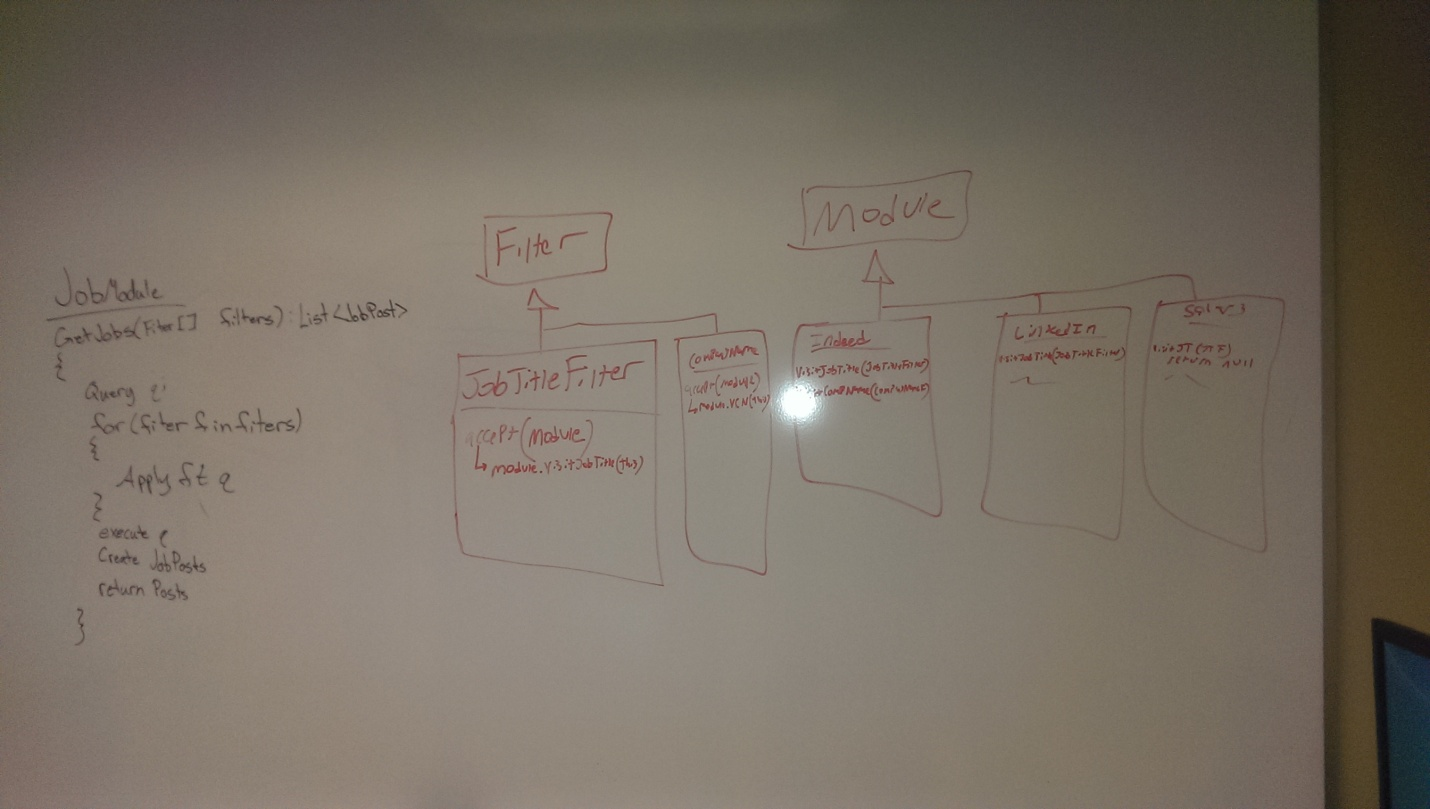 JobModule
GetJobs(Fiter[] filters): List<JobPost>
{
Query q
for(fiter f in fiters)
{
Apply f t q
}
execute q
Create JobPosts
return Posts
}
Filter
JobTitleFilter
accept(Module)
module.VisitJobTitle(this)
accept(module)
module.VCN(this)
Module
Indeed
VisitJobTitle(JobTitleFilter)
LinkedIn
visitJobTitle(JobTitleFilter)
visitJT(JTF)
return null